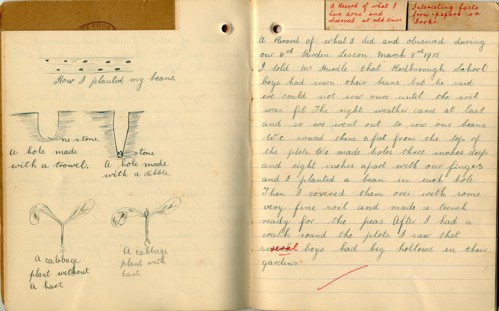 How I planted my beans
no stone
stone
A hole made
with a trowel.
A hole made
with a dibble.
A cabbage
plant without
a hart
A cabbage
plant with
hart
A Record of what I
have done and
observed at odd times
Interesting facts
from papers or
books.
A Record of what I did and observed during
our 6th Garden Lesson March 8th 1915
I told Mr Hurdle that Rodborough School
boys had sown their beans but he said
we could not sow ours until the soil
was fit The right weather came at last
and so we went out to sow our beans
We sowed them 2 feet from the top of
the plots We made holes three inches deep
and eight inches apart with our fingers
and I planted a bean in each hole
Then I covered them over with some
very fine soil and made a trench
ready for the peas After I had a
walk round the plots I saw that
several boys had big hollows in their
gardens